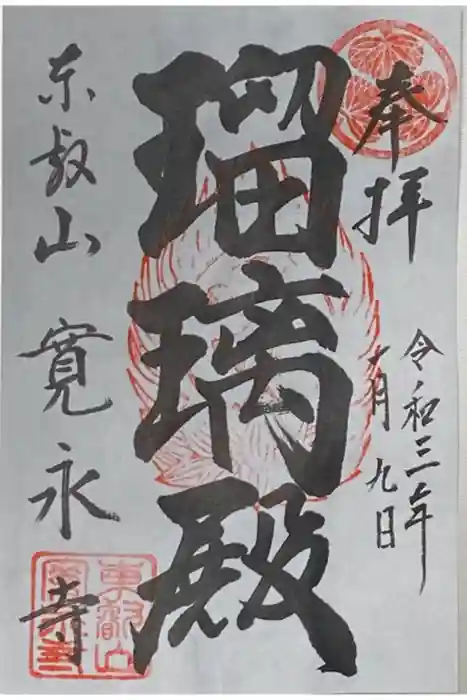 奉拝
令和三年
十月九日
瑠璃殿
东叡山 寛永寺
東叡山
寛永寺